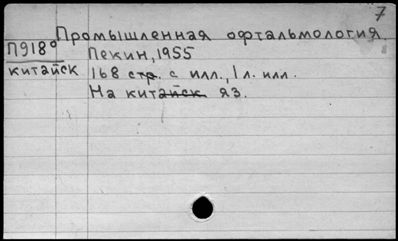 7
Промышленная офтальмология.
П918° Пекин, 1955
китайск 168 стр. с илл., 1 л. илл.
На китайск яз.